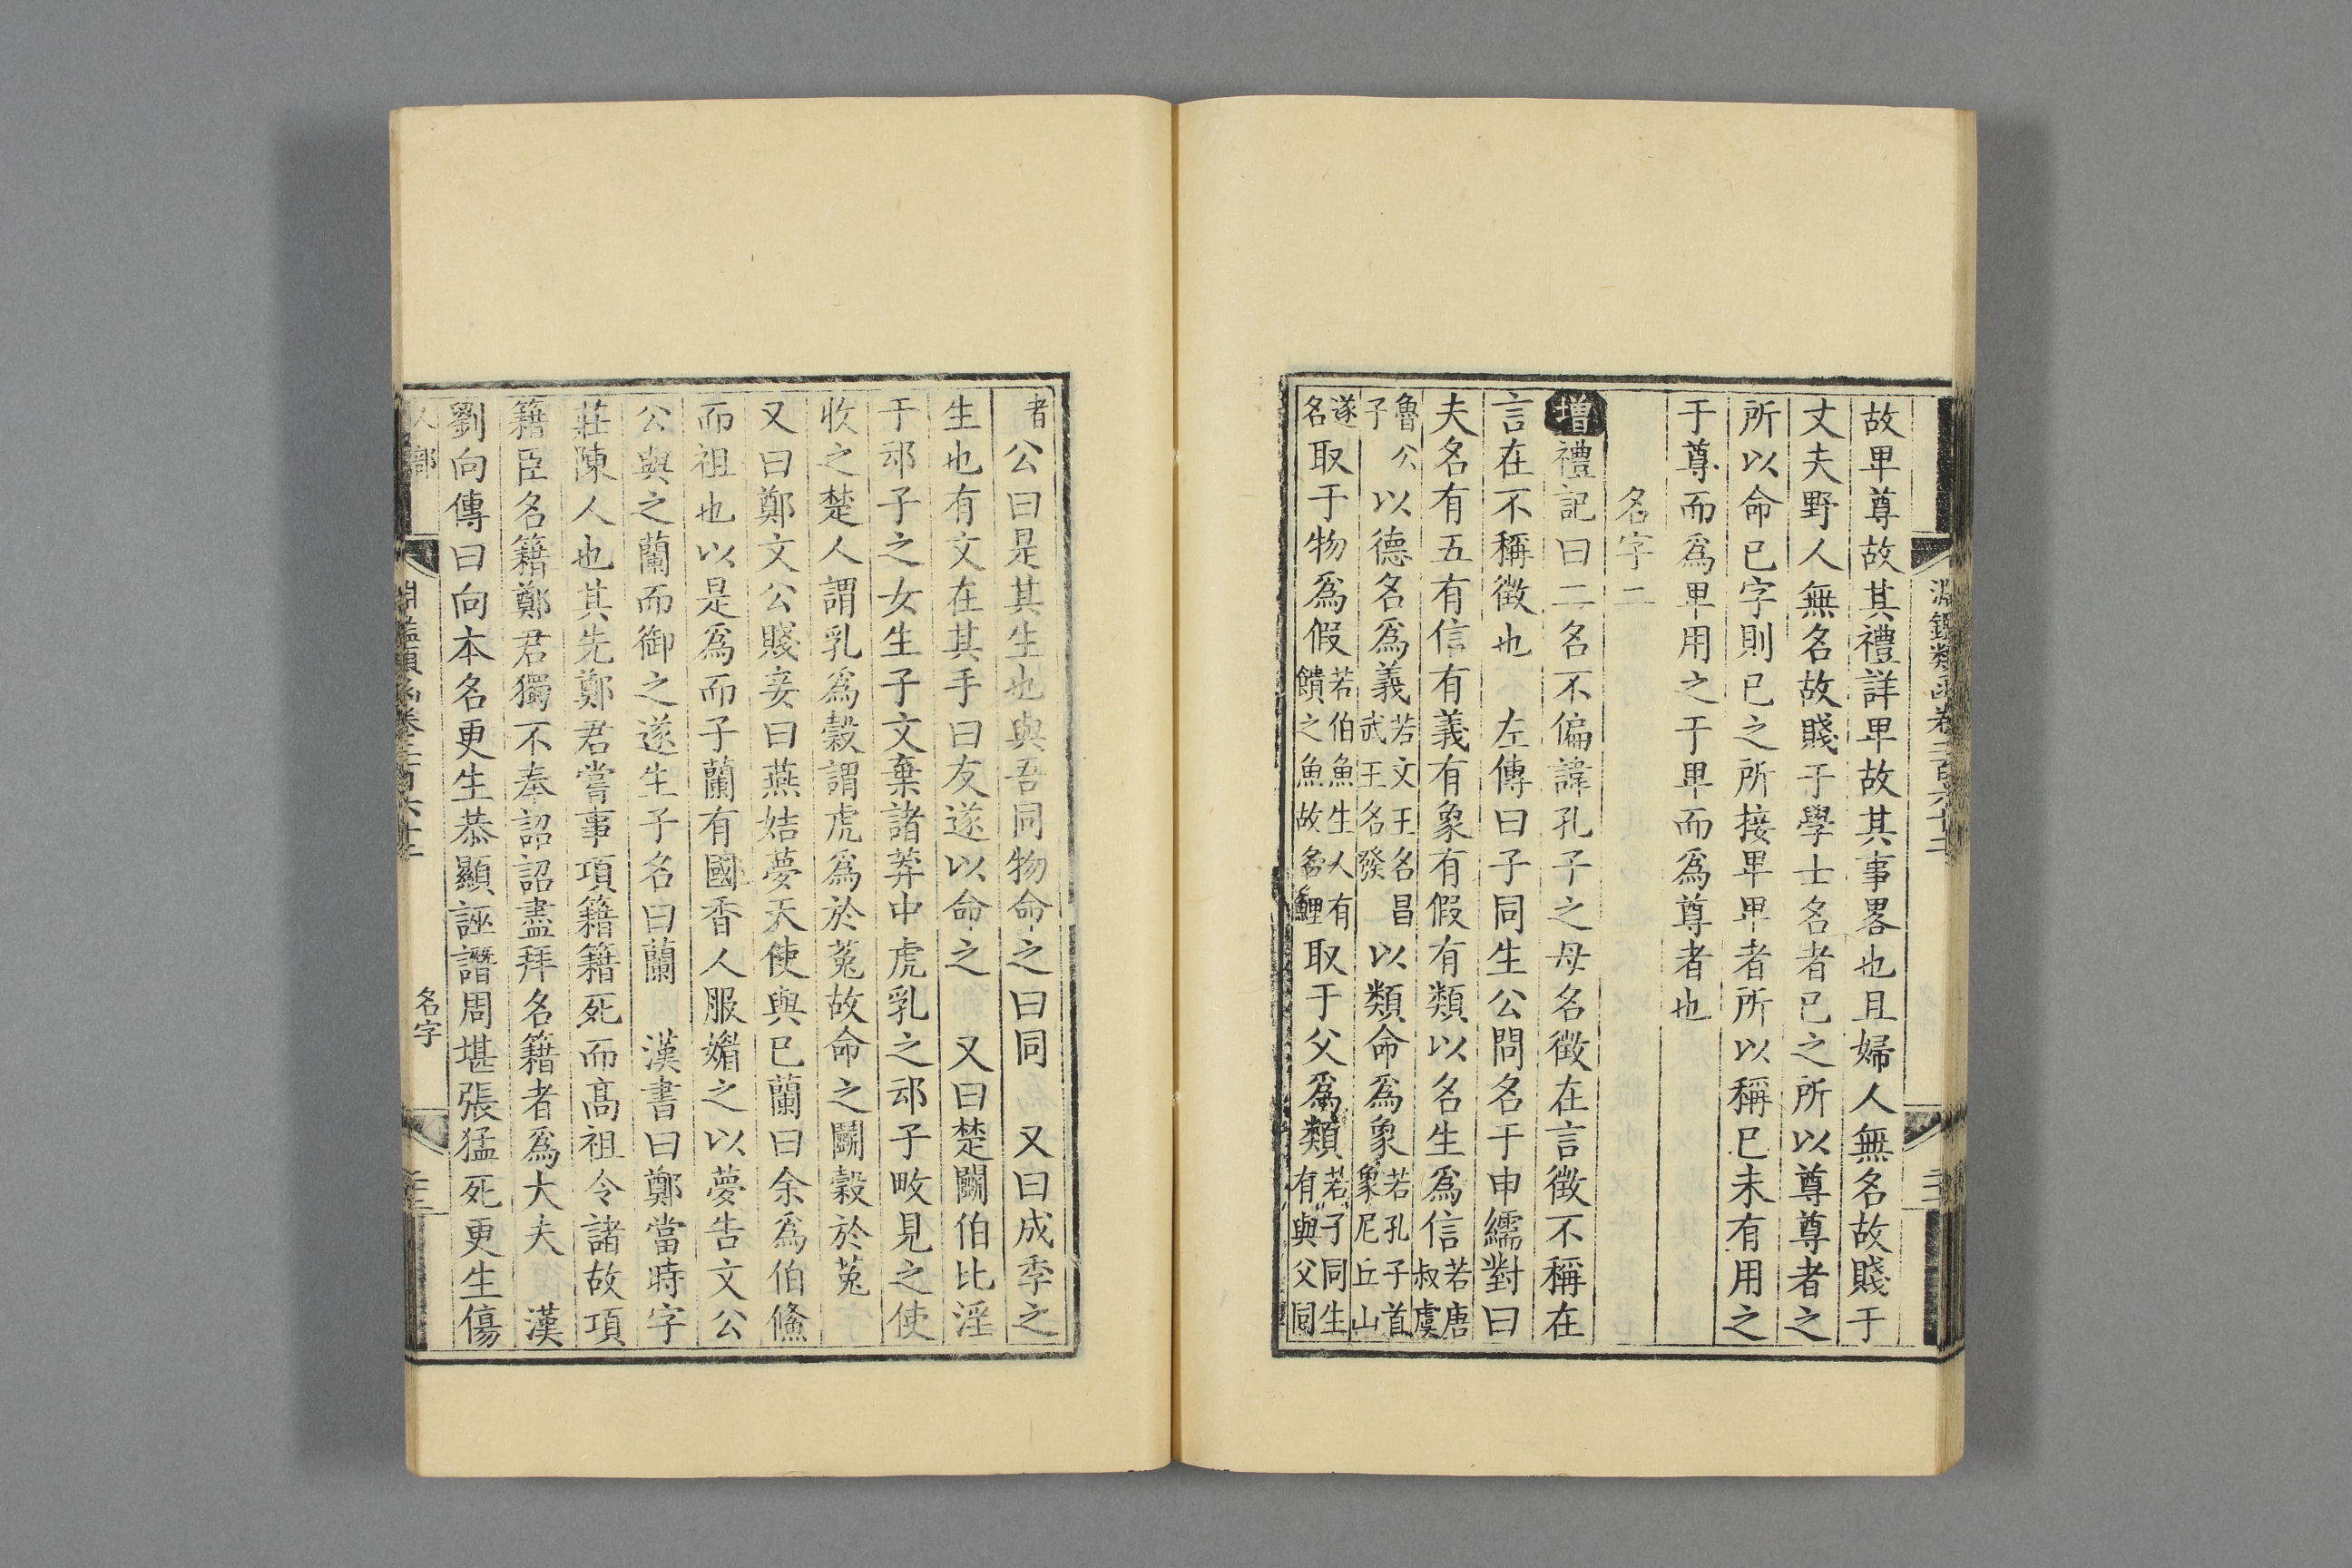 淵鑑類函卷二百六十二
故卑尊故其禮詳卑故其事畧也且婦人無名故賤于
丈夫野人無名故賤于學士名者已之所以尊尊者之
所以命已字則已之所接卑卑者所以稱已未有用之
于尊而爲卑用之于卑而爲尊者也
名字二
增禮記曰二名不偏諱孔子之母名徵在言徵不稱在
言在不稱徵也　左傳曰子同生公問名于申繻對曰
夫名有五有信有義有象有假有類以名生爲信若唐叔虞
魯公子公以德名爲義若文王名昌武王名發以類命爲象若孔子首象尼丘山
遂名取于物爲假若伯魚生人有饋之魚故名鯉取于父爲類若子同生有與父同
者公曰是其生也與吾同物命之曰同　又曰成季之
生也有文在其手曰友遂以命之　又曰楚鬭伯比淫
于䢵子之女生子文棄諸莽中虎乳之䢵子畋見之使
收之楚人謂乳爲穀謂虎爲於菟故命之鬭穀於菟
又曰鄭文公賤妾曰燕姞夢天使與已蘭曰余爲伯鯈
而祖也以是爲而子蘭有國香人服媚之以夢告文公
公與之蘭而御之遂生子名曰蘭　漢書曰鄭當時字
莊陳人也其先鄭君嘗事項籍籍死而高祖令諸故項
籍臣名籍鄭君獨不奉詔詔盡拜名籍者爲大夫　漢
劉向傳曰向本名更生恭顯誣譖周堪張猛死更生傷
人部
淵鑑類函卷二百六十二
名字